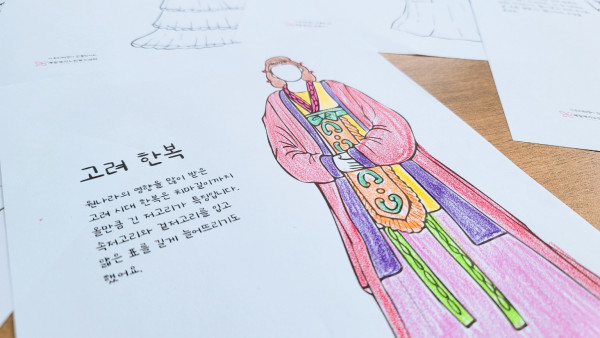 고려 한복
원나라의 영향을 많이 받은
고려 시대 한복은 치마길이까지
올만큼 긴 저고리가 특징입니다.
속저고리와 겉저고리를 입고
얇은 표를 길게 늘어뜨리기도
했어요.